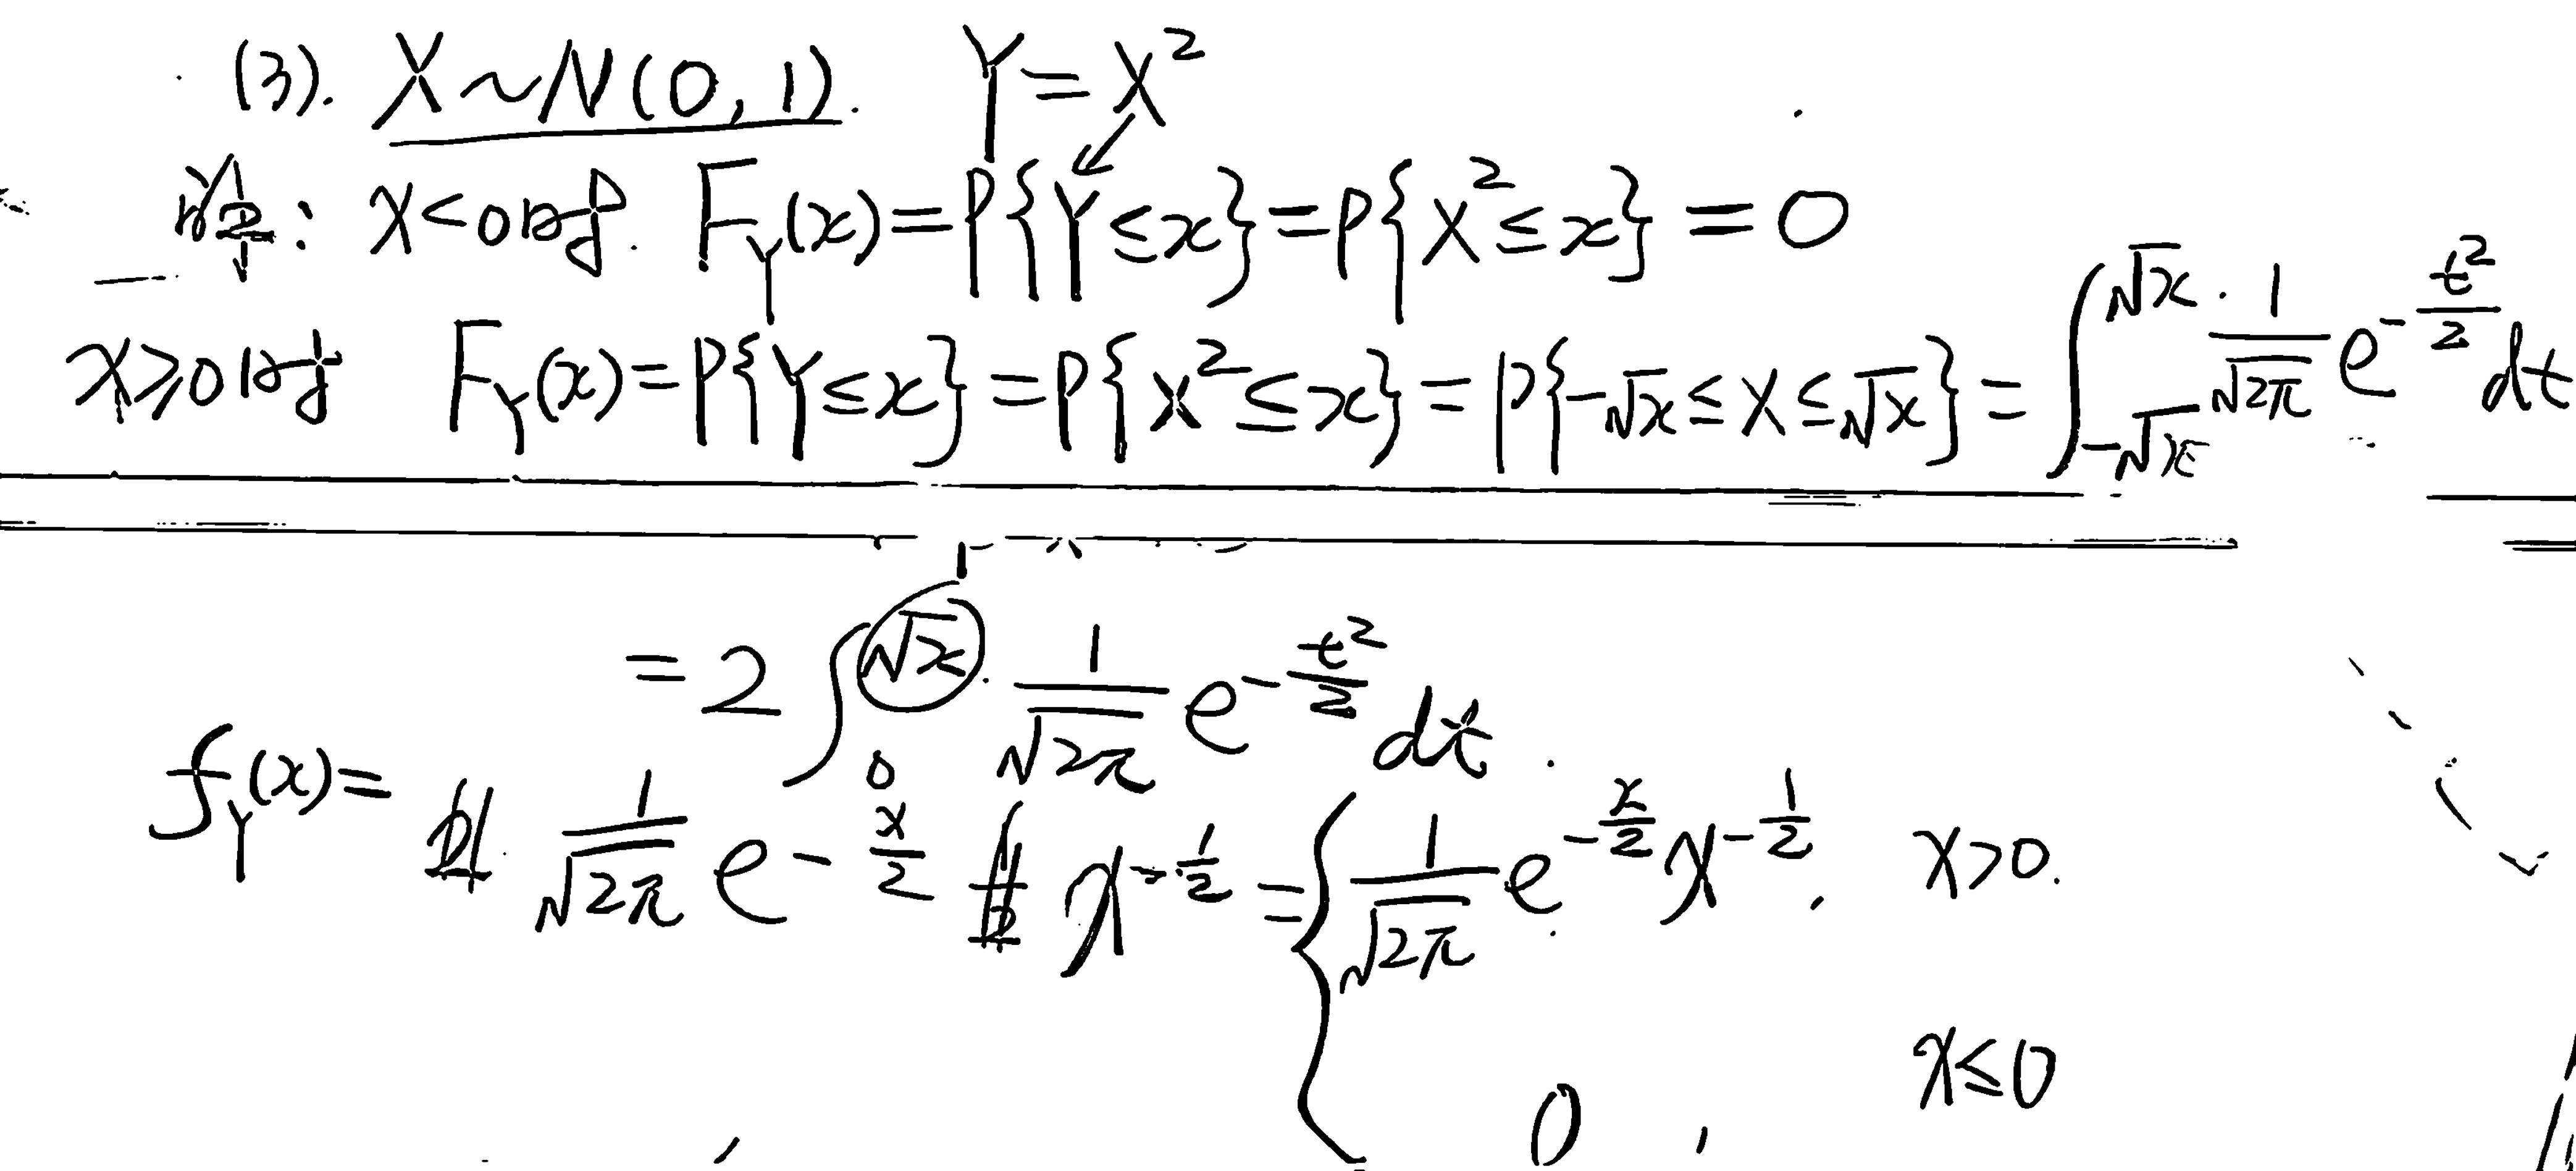 (3). X~N(0,1). Y=X²
解: x<0时. F_Y(x)=P{Y≤x}=P{X²≤x}=0
x≥0时 F_Y(x)=P{Y≤x}=P{X²≤x}=P{-√x≤X≤√x}=∫_{-√x}^{√x} 1/√2π e^{-t²/2}dt
=2∫_0^{√x} 1/√2π e^{-t²/2}dt.
f_Y(x)= 1/√2π e^{-x/2} x^{-1/2} = { 1/√2π e^{-x/2} x^{-1/2}, x>0.
0, x≤0